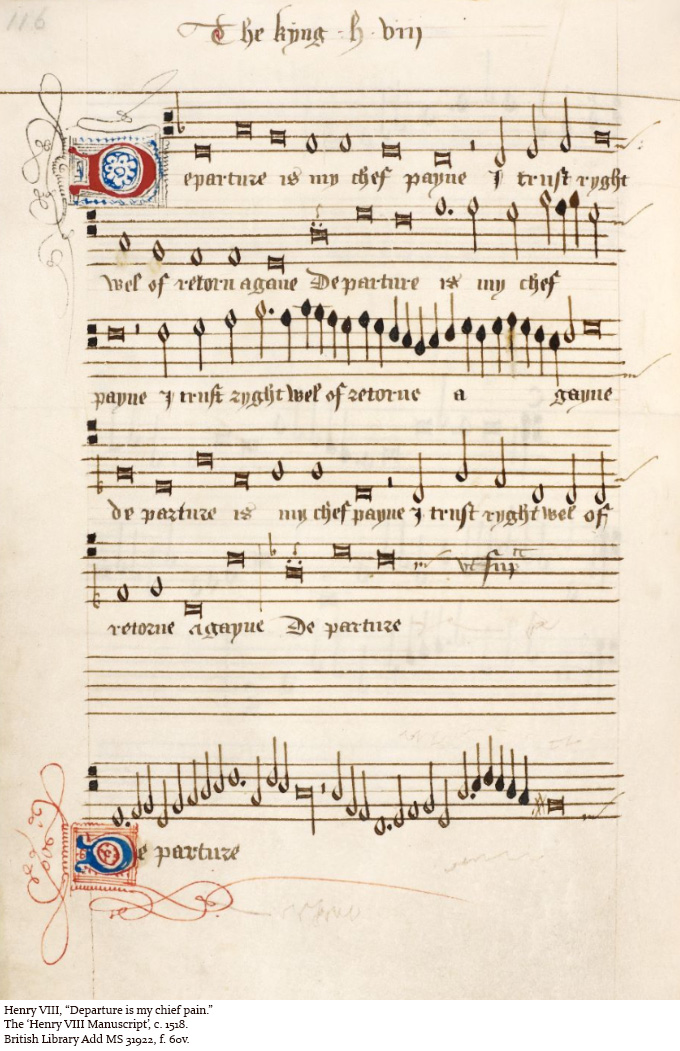 116
The kyng · h · viii
Departure is my chef payne I trust ryght
wel of retorn agane Departure is my chef
payne I trust ryght wel of retorne a gayne
de parture is my chef payne I trust ryght wel of
retorne agayne De parture
vt sup
De parture
Henry VIII, “Departure is my chief pain.”
The ‘Henry VIII Manuscript’, c. 1518.
British Library Add MS 31922, f. 60v.